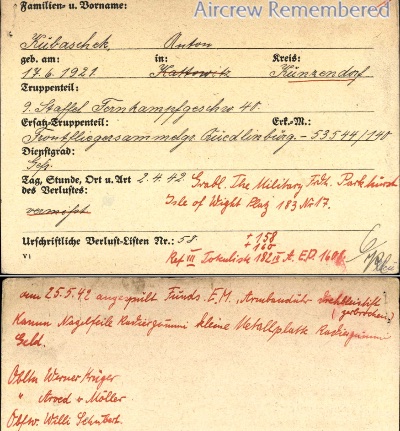 Familien- u. Vorname:
Aircrew Remembered
Kubaschek, Anton
geb. am: in: Kreis:
17.6.1921. Kattowitz Kunzendorf
Truppenteil:
9. Staffel Fernkampfgeschw 40.
Ersatz-Truppenteil: Erk.-M.:
Frontfliegersammelgr. Quedlinburg - 53544/140
Dienstgrad:
Gefr.
Tag, Stunde, Ort u. Art 2.4.42 Grabl. The Military Frdh. Parkhurst
des Verlustes: Isle of Wight Plag 183 Nr 17.
vermisst
Urschriftliche Verlust-Listen Nr.: 58. + 158
+ 160
V) Ref III Tokuliste 182 A. E.D. 1601
am 25.5.42 angespült Funds. E.M. Armbanduhr Drehbleistift
(zerbrochen)
Kamm Nagelfeile Radiergummi kleine Metallplatte Radiergummi
Geld.
Obltn Werner Krüger
" Arved v Möller
Obfw. Willi Schubert.